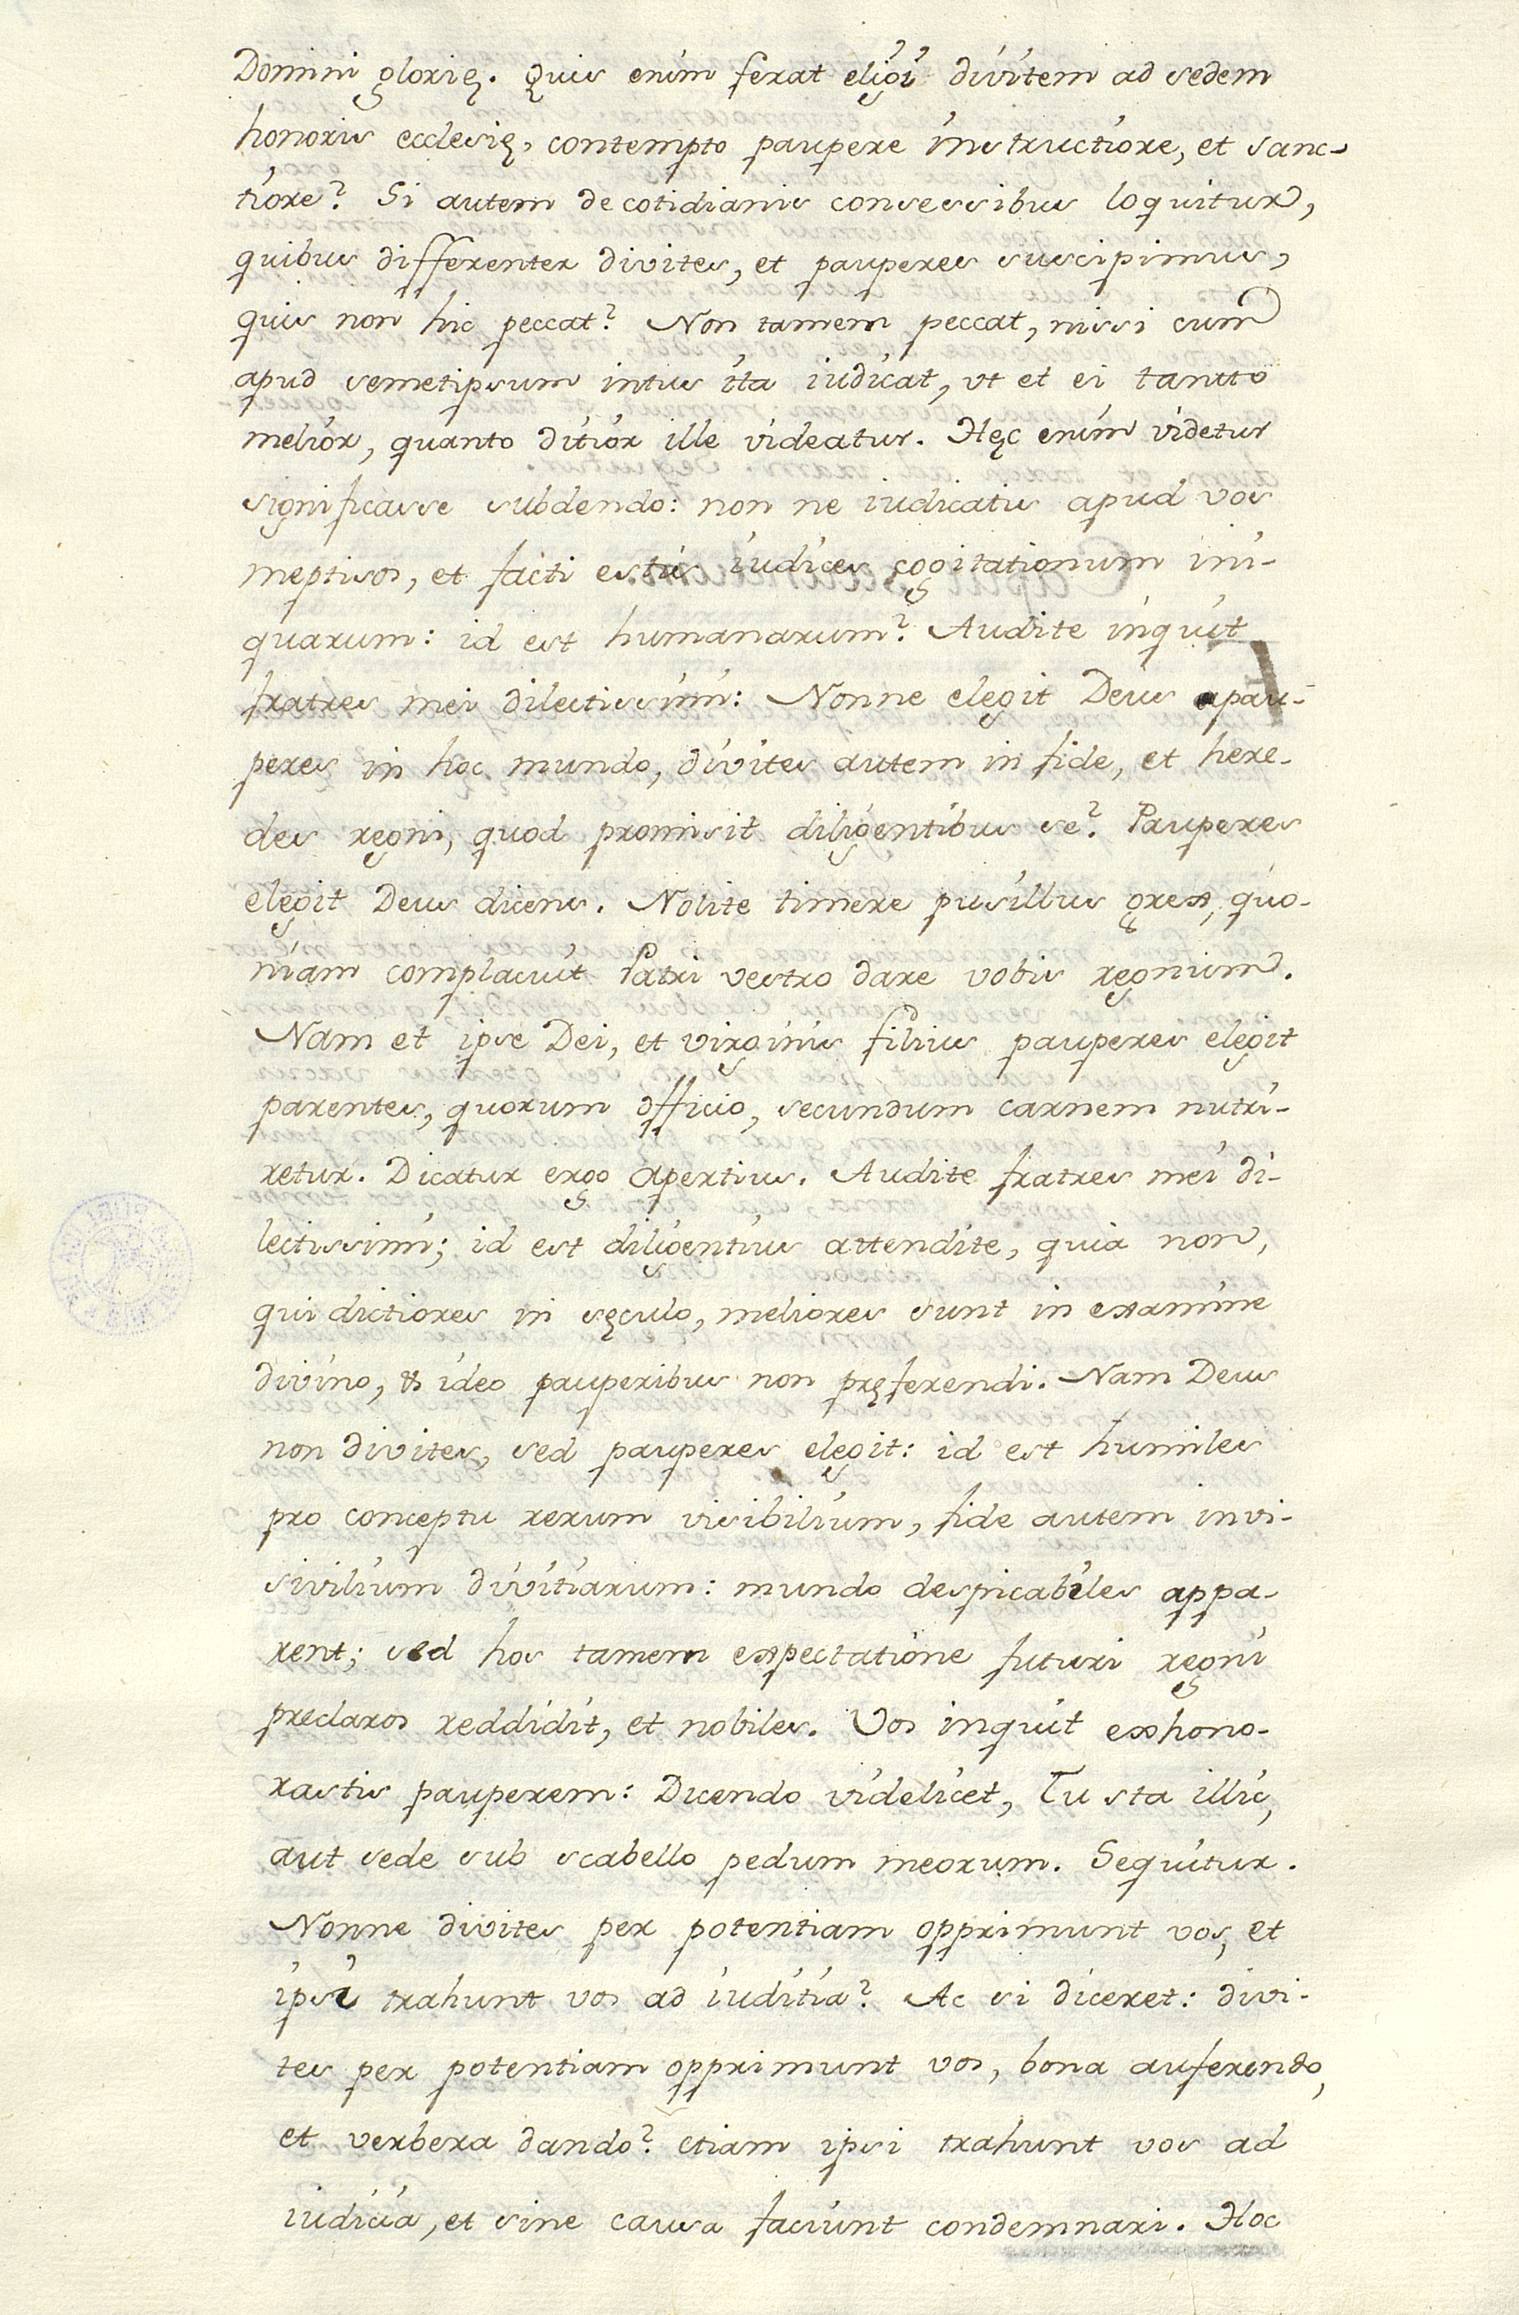 Domini glorię. Quis enim ferat eligi divitem ad sedem
honoris ecclesię, contempto paupere instructiore, et sanc-
tiore? Si autem de cotidianis consessibus loquitur,
quibus differenter divites, et pauperes suscipimus,
quis non hic peccat? Non tamem peccat, nissi cum
apud semetipsum intus ita iudicat, vt et ei tanto
melior, quanto ditior ille videatur. Hęc enim videtur
significasse subdendo: non ne iudicatis apud vos
meptisos, et facti estis iudices cogitationum ini-
quarum: id est humanarum? Audite inquit
fratres mei dilectissimi: Nonne elegit Deus pau-
peres in hoc mundo, divites autem in fide, et here-
des regni, quod promisit diligentibus se? Pauperes
elegit Deus dicens. Nolite timere pusillus grex, quo-
niam complacuit Patri vestro dare vobis regnium.
Nam et ipse Dei, et virginis filius pauperes elegit
parentes, quorum officio, secundum carnem nutri-
retur. Dicatur ergo apertius. Audite fratres mei di-
lectissimi; id est diligentius attendite, quia non,
qui dictiores in sęculo, meliores sunt in examine
divino, & ideo pauperibus non pręferendi. Nam Deus
non divites, sed pauperes elegit: id est humiles
pro conceptu rerum visibilium, fide autem invi-
sivilium divitiarum: mundo despicabiles appa-
rent; sed hos tamem expectatione futuri regni
preclaros reddidit, et nobiles. Vos inquit exhono-
rastis pauperem: Dicendo videlicet, Tu sta illic,
aut sede sub scabello pedum meorum. Sequitur.
Nonne divites per potentiam opprimunt vos, et
ipsi trahunt vos ad iuditia? Ac si diceret: divi-
tes per potentiam opprimunt vos, bona auferendo,
et verbera dando? etiam ipsi trahunt vos ad
iudicia, et sine causa faciunt condemnari. Hoc